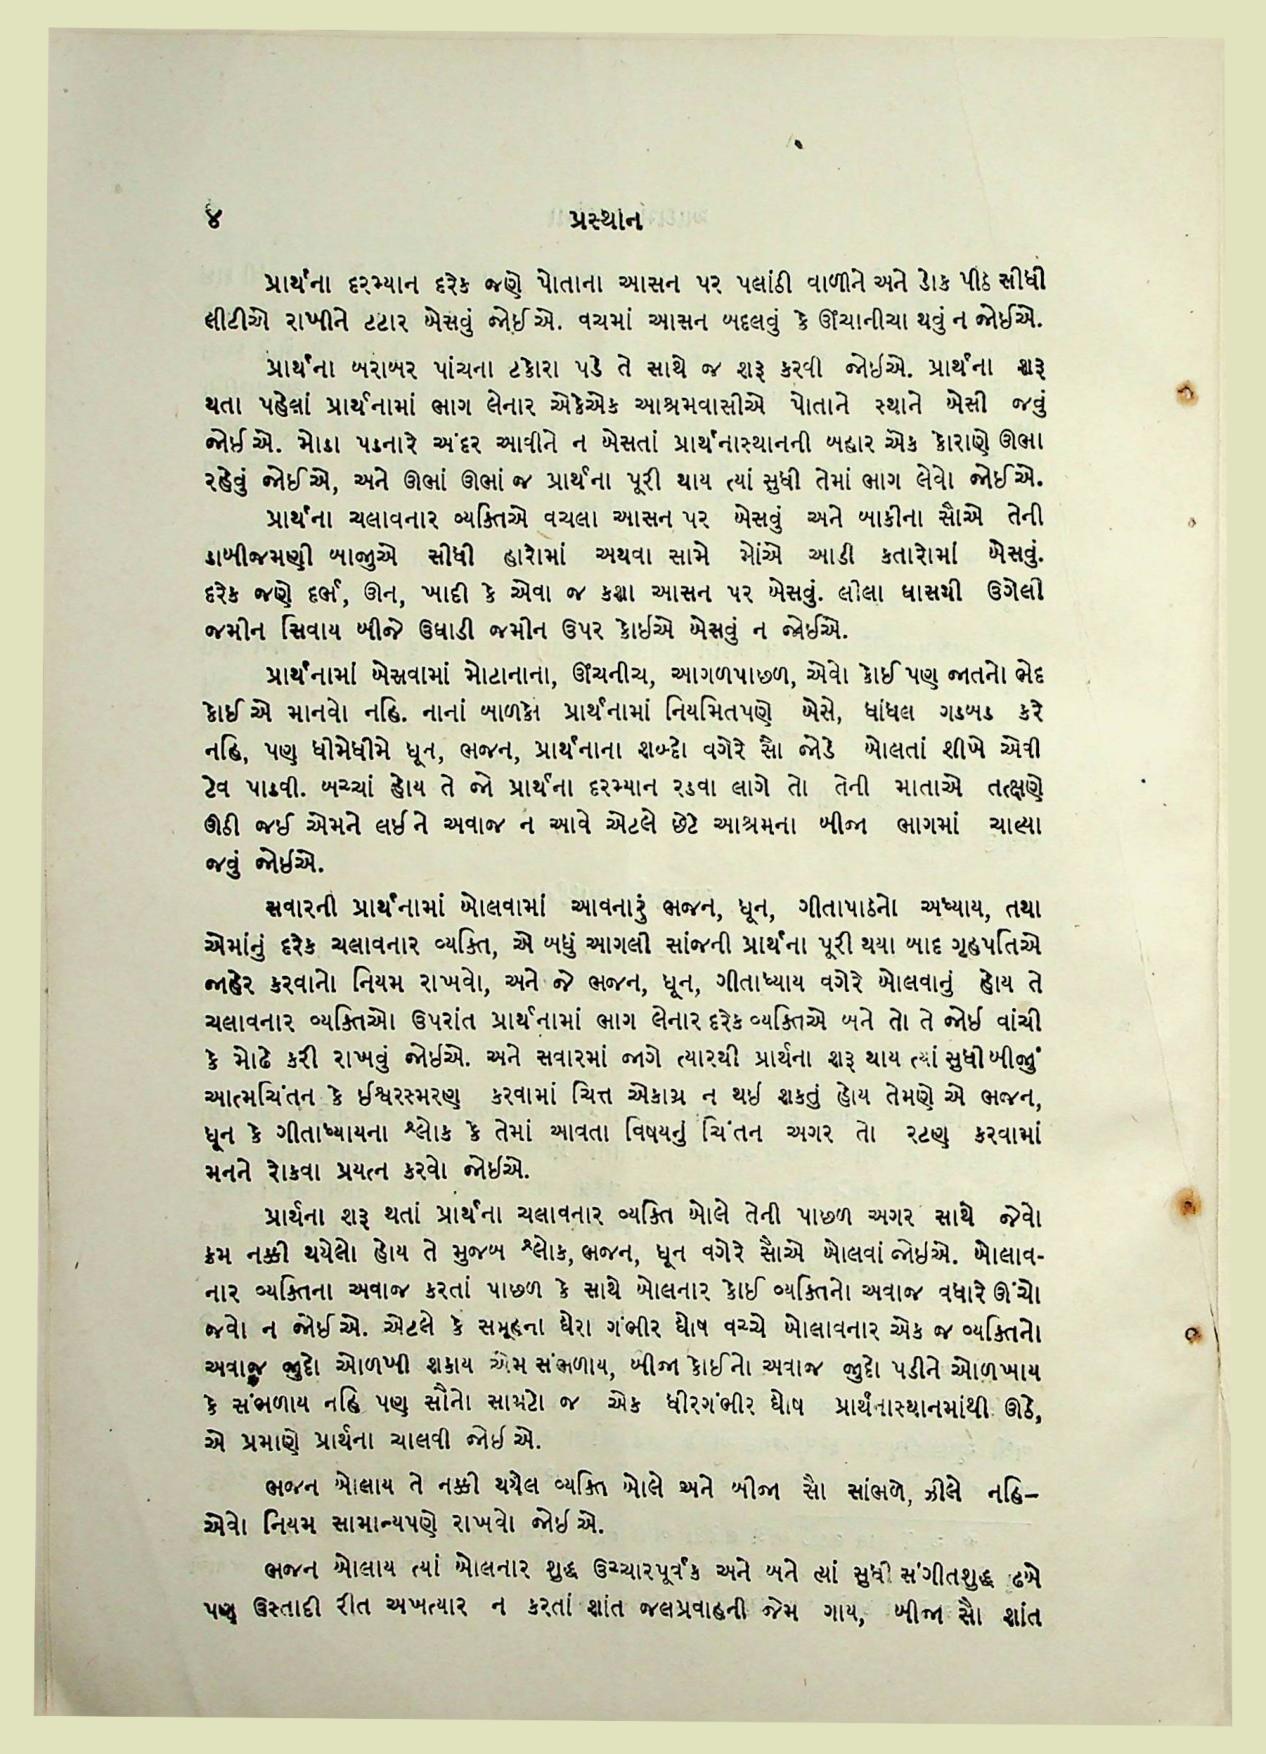 ૪
પ્રસ્થાન
પ્રાર્થના દરમ્યાન દરેક જણે પોતાના આસન પર પલાંઠી વાળીને અને ડોક પીઠ સીધી
લીટીએ રાખીને ટટાર બેસવું જોઈએ. વચમાં આસન બદલવું કે ઊંચાનીચા થવું ન જોઈએ.
પ્રાર્થના બરાબર પાંચના ટકોરા પડે તે સાથે જ શરૂ કરવી જોઈએ. પ્રાર્થના શરૂ
થતા પહેલાં પ્રાર્થનામાં ભાગ લેનાર એકેએક આશ્રમવાસીએ પોતાને સ્થાને બેસી જવું
જોઈએ. મોડા પડનારે અંદર આવીને ન બેસતાં પ્રાર્થનાસ્થાનની બહાર એક કોરાણે ઊભા
રહેવું જોઈએ, અને ઊભાં ઊભાં જ પ્રાર્થના પૂરી થાય ત્યાં સુધી તેમાં ભાગ લેવો જોઈએ.
પ્રાર્થના ચલાવનાર વ્યક્તિએ વચલા આસન પર બેસવું અને બાકીના સૌએ તેની
ડાબીજમણી બાજુએ સીધી હારોમાં અથવા સામે મોંએ આડી કતારોમાં બેસવું.
દરેક જણે દર્ભ, ઊન, ખાદી કે એવા જ કશા આસન પર બેસવું. લીલા ઘાસથી ઉગેલી
જમીન સિવાય બીજે ઉઘાડી જમીન ઉપર કોઈએ બેસવું ન જોઈએ.
પ્રાર્થનામાં બેસવામાં મોટાનાના, ઊંચનીચ, આગળપાછળ, એવો કોઈ પણ જાતનો ભેદ
કોઈએ માનવો નહિ. નાનાં બાળકો પ્રાર્થનામાં નિયમિતપણે બેસે, ધાંધલ ગડબડ કરે
નહિ, પણ ધીમેધીમે ધૂન, ભજન, પ્રાર્થનાના શબ્દો વગેરે સૌ જોડે બોલતાં શીખે એવી
ટેવ પાડવી. બચ્ચાં હોય તે જો પ્રાર્થના દરમ્યાન રડવા લાગે તો તેની માતાએ તત્ક્ષણે
ઊઠી જઈ એમને લઈને અવાજ ન આવે એટલે છેટે આશ્રમના બીજા ભાગમાં ચાલ્યા
જવું જોઈએ.
સવારની પ્રાર્થનામાં બોલવામાં આવનારું ભજન, ધૂન, ગીતાપાઠનો અધ્યાય, તથા
એમાંનું દરેક ચલાવનાર વ્યક્તિ, એ બધું આગલી સાંજની પ્રાર્થના પૂરી થયા બાદ ગૃહપતિએ
જાહેર કરવાનો નિયમ રાખવો, અને જે ભજન, ધૂન, ગીતાધ્યાય વગેરે બોલવાનું હોય તે
ચલાવનાર વ્યક્તિઓ ઉપરાંત પ્રાર્થનામાં ભાગ લેનાર દરેક વ્યક્તિએ બને તો તે જોઈ વાંચી
કે મોઢે કરી રાખવું જોઈએ. અને સવારમાં જાગે ત્યારથી પ્રાર્થના શરૂ થાય ત્યાં સુધી બીજું
આત્મચિંતન કે ઈશ્વરસ્મરણ કરવામાં ચિત્ત એકાગ્ર ન થઈ શકતું હોય તેમણે એ ભજન,
ધૂન કે ગીતાધ્યાયના શ્લોક કે તેમાં આવતા વિષયનું ચિંતન અગર તો રટણ કરવામાં
મનને રોકવા પ્રયત્ન કરવો જોઈએ.
પ્રાર્થના શરૂ થતાં પ્રાર્થના ચલાવનાર વ્યક્તિ બોલે તેની પાછળ અગર સાથે જેવો
ક્રમ નક્કી થયેલો હોય તે મુજબ શ્લોક, ભજન, ધૂન વગેરે સૌએ બોલવાં જોઈએ. બોલાવ-
નાર વ્યક્તિના અવાજ કરતાં પાછળ કે સાથે બોલનાર કોઈ વ્યક્તિનો અવાજ વધારે ઊંચો
જવો ન જોઈએ. એટલે કે સમૂહના ઘેરા ગંભીર ઘોષ વચ્ચે બોલાવનાર એક જ વ્યક્તિનો
અવાજ જુદો ઓળખી શકાય એમ સંભળાય, બીજા કોઈનો અવાજ જુદો પડીને ઓળખાય
કે સંભળાય નહિ પણ સૌનો સામટો જ એક ધીરગંભીર ઘોષ પ્રાર્થનાસ્થાનમાંથી ઊઠે,
એ પ્રમાણે પ્રાર્થના ચાલવી જોઈએ.
ભજન બોલાય તે નક્કી થયેલ વ્યક્તિ બોલે અને બીજા સૌ સાંભળે, ઝીલે નહિ–
એવો નિયમ સામાન્યપણે રાખવો જોઈએ.
ભજન બોલાય ત્યાં બોલનાર શુદ્ધ ઉચ્ચારપૂર્વક અને બને ત્યાં સુધી સંગીતશુદ્ધ ઢબે
પણ ઉસ્તાદી રીત અખત્યાર ન કરતાં શાંત જલપ્રવાહની જેમ ગાય, બીજા સૌ શાંત